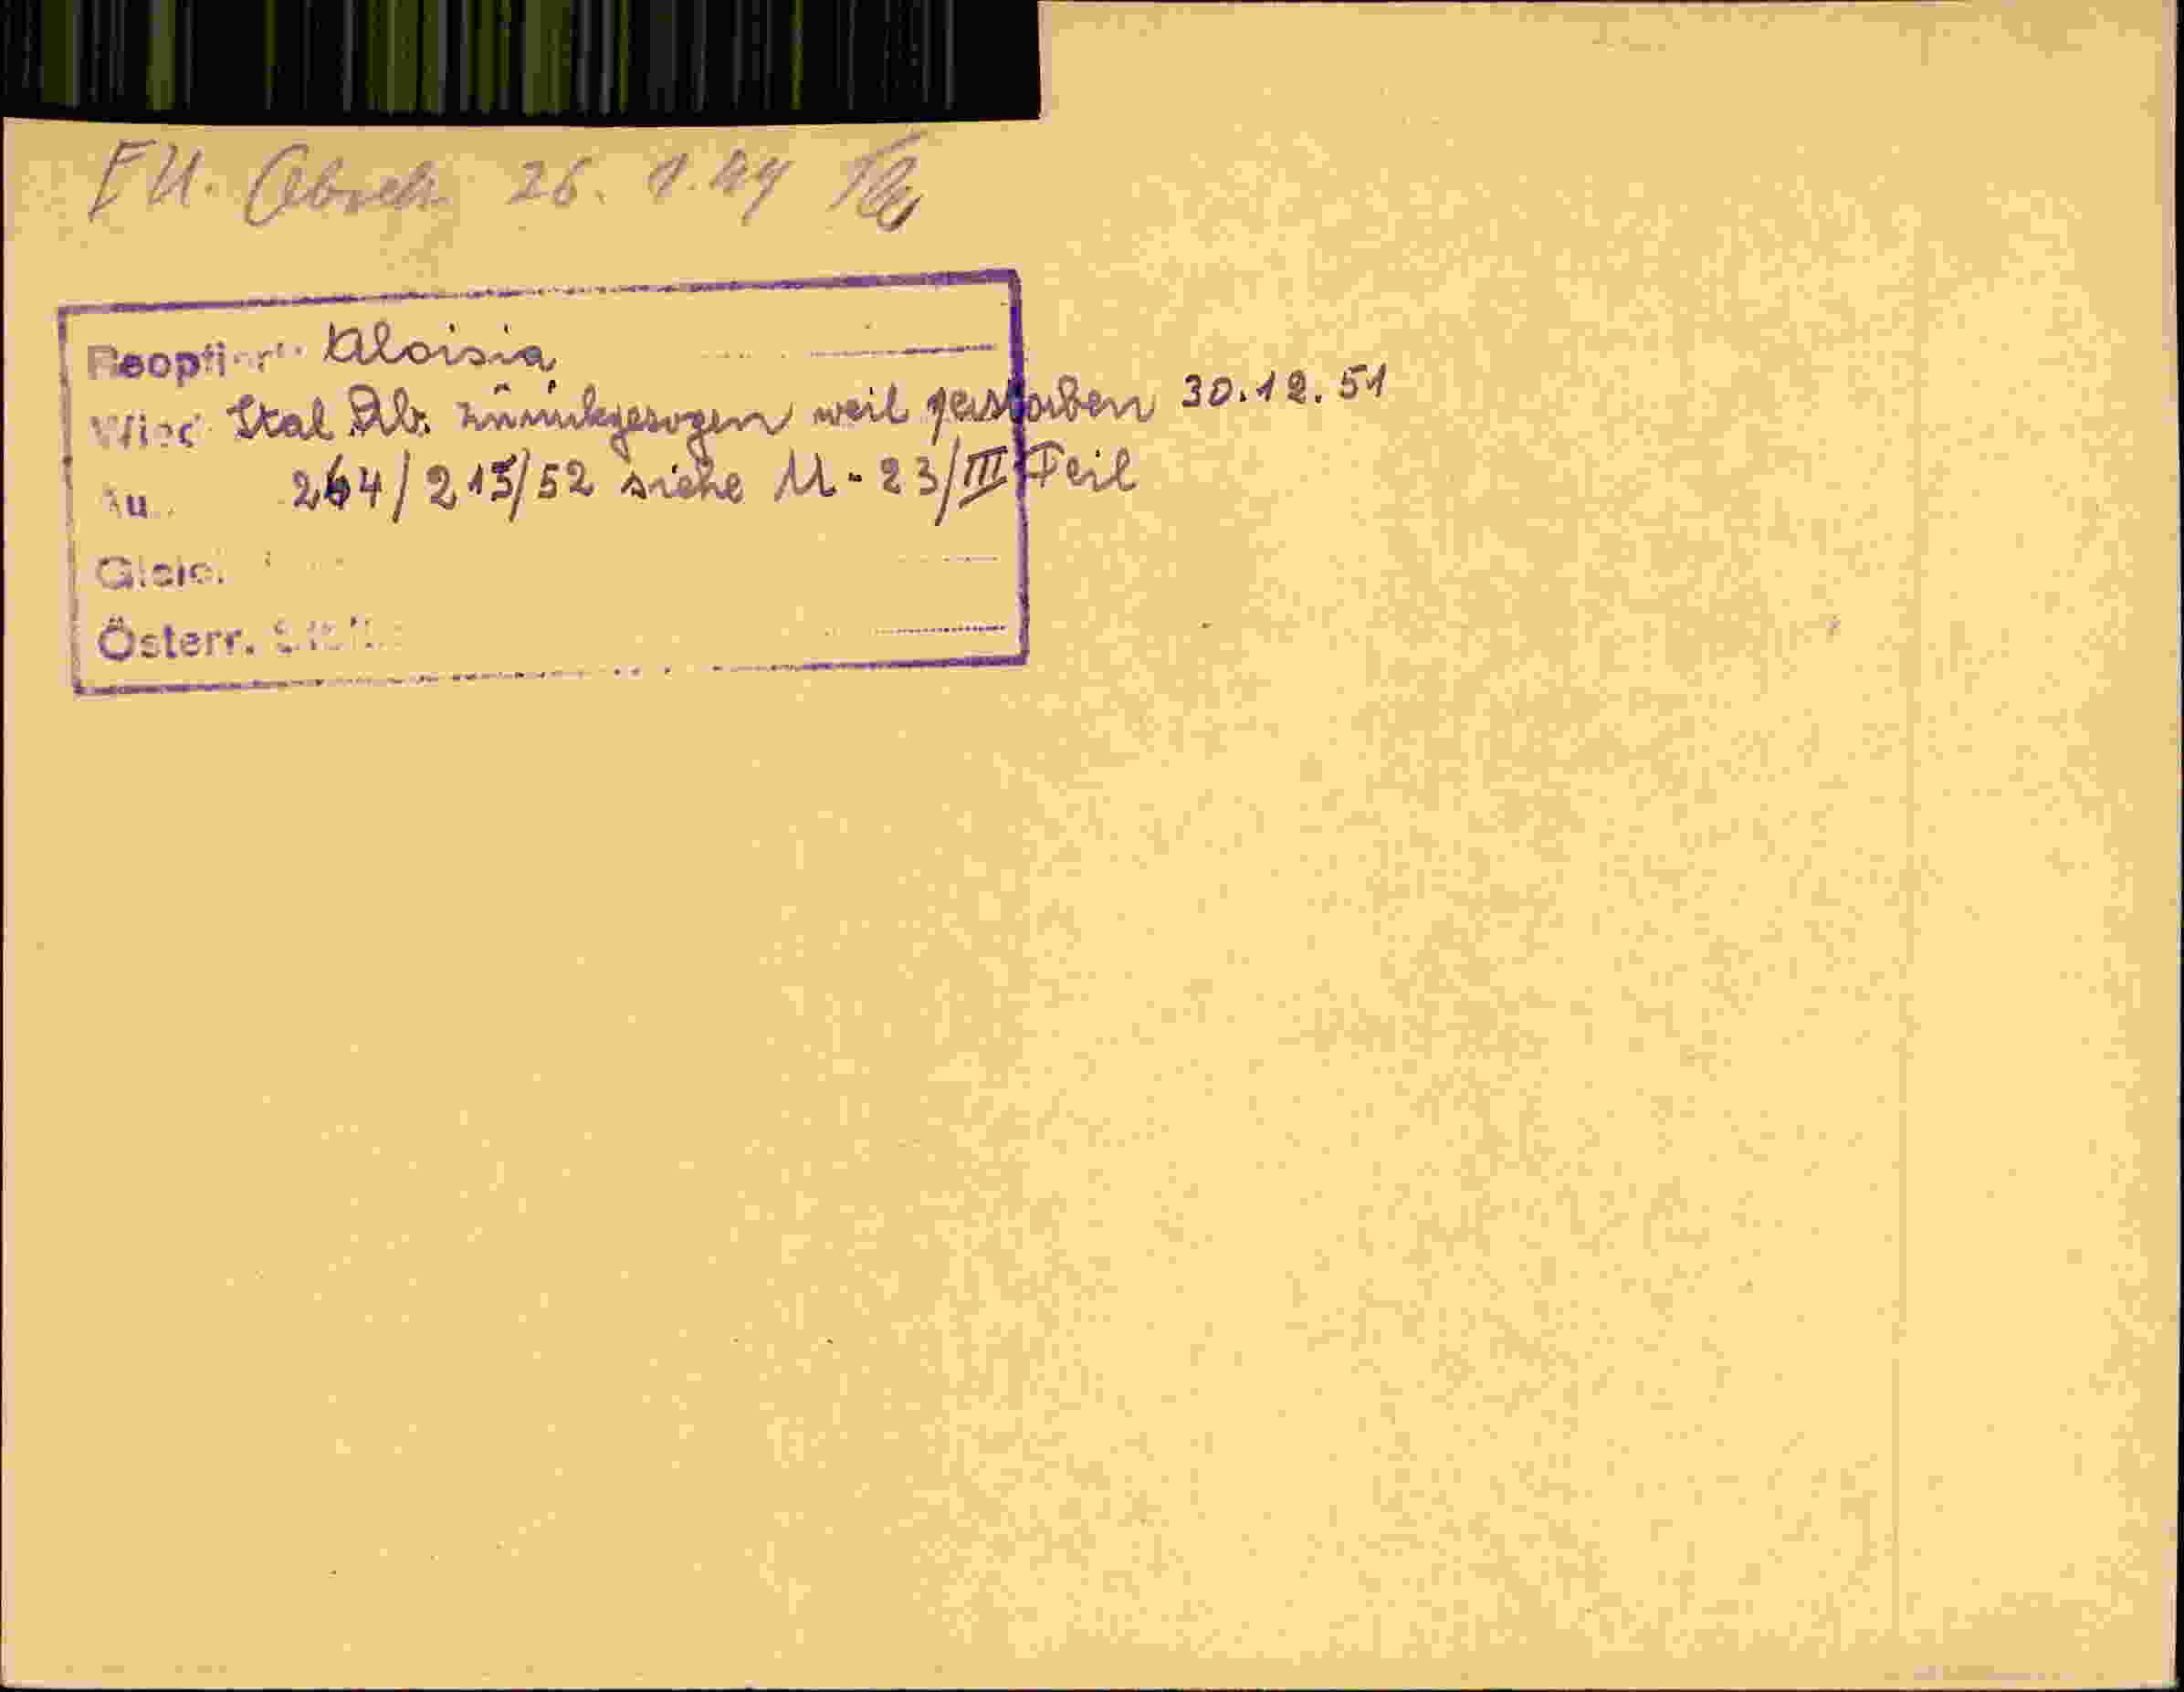 EU. Absch 26. 1.44
Reoptiert Aloisia
Wied Ital Rb. zurückgezogen weil gestorben 30.12.51
264/215/52 siehe U-23/III Teil
Österr.